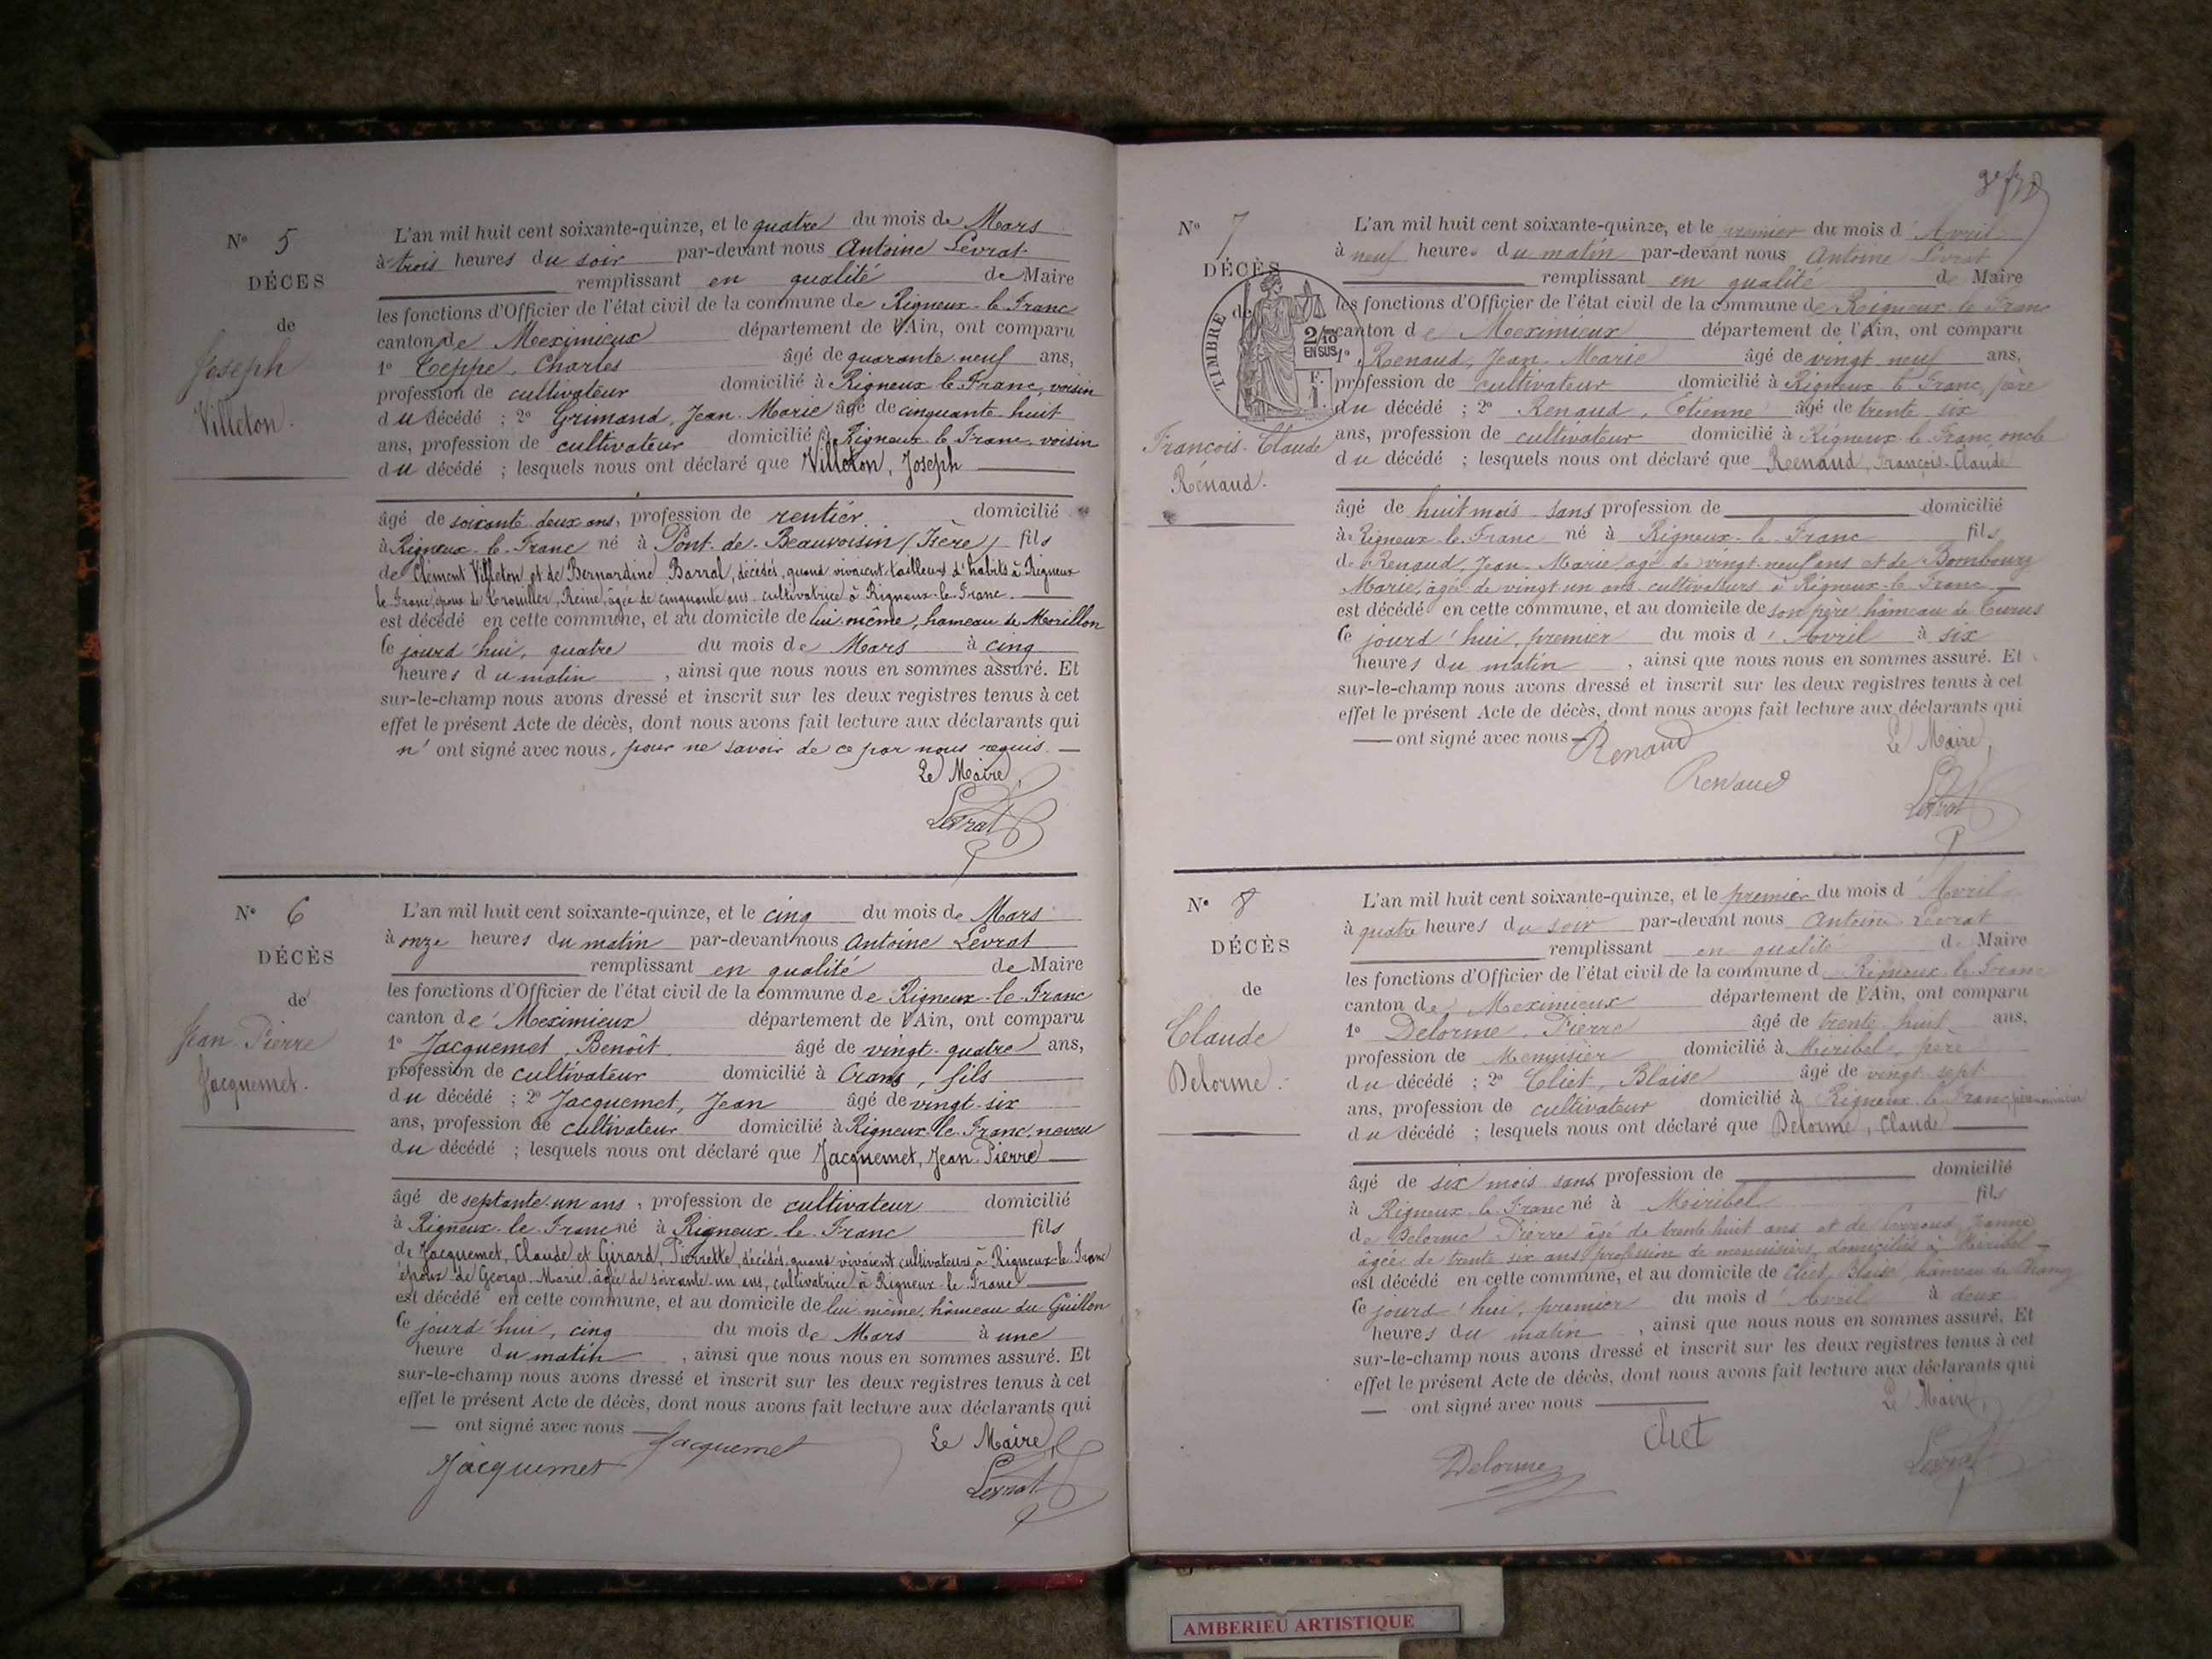 N° 5
DÉCES
de
Joseph
Villeton.
L'an mil huit cent soixante-quinze, et le quatre du mois de Mars
à trois heures du soir par-devant nous Antoine Levrat
remplissant en qualité de Maire
les fonctions d'Officier de l'état civil de la commune de Rigneux-le-Franc
canton de Meximieux département de l'Ain, ont comparu
1° Teppe, Charles âgé de quarante-neuf ans,
profession de cultivateur domicilié à Rigneux-le-Franc, voisin
du décédé ; 2° Grimand, Jean-Marie âgé de cinquante-huit
ans, profession de cultivateur domicilié à Rigneux-le-Franc, voisin
du décédé ; lesquels nous ont déclaré que Villeton, Joseph
âgé de soixante-deux ans, profession de rentier domicilié
à Rigneux-le-Franc né à Pont-de-Beauvoisin (Isère) fils
de Clément Villeton et de Bernardine Barral, décédés, quand vivaient tailleurs d'habits à Rigneux
le-Franc, époux de Trouiller, Reine, âgée de cinquante ans cultivatrice à Rigneux-le-Franc.
est décédé en cette commune, et au domicile de lui-même, hameau de Morillon
Ce jourd'hui, quatre du mois de Mars à cinq
heures du matin, ainsi que nous nous en sommes assuré. Et
sur-le-champ nous avons dressé et inscrit sur les deux registres tenus à cet
effet le présent Acte de décès, dont nous avons fait lecture aux déclarants qui
n'ont signé avec nous, pour ne savoir de ce par nous requis.
Le Maire,
Levrat
N° 6
DÉCÈS
de
Jean-Pierre
Jacquemet.
L'an mil huit cent soixante-quinze, et le cinq du mois de Mars
à onze heures du matin par-devant nous Antoine Levrat
remplissant en qualité de Maire
les fonctions d'Officier de l'état civil de la commune de Rigneux-le-Franc
canton de Meximieux département de l'Ain, ont comparu
1° Jacquemet, Benoît âgé de vingt-quatre ans,
profession de cultivateur domicilié à Crans, fils
du décédé ; 2° Jacquemet, Jean âgé de vingt-six
ans, profession de cultivateur domicilié à Rigneux-le-Franc, neveu
du décédé ; lesquels nous ont déclaré que Jacquemet, Jean-Pierre
âgé de septante-un ans, profession de cultivateur domicilié
à Rigneux-le-Franc né à Rigneux-le-Franc fils
de Jacquemet, Claude et Girard, Pierrette, décédés, quand vivaient cultivateurs à Rigneux-le-Franc
époux de Georges, Marie, âgée de soixante-un ans, cultivatrice à Rigneux-le-Franc
est décédé en cette commune, et au domicile de lui-même, hâmeau du Guillon
Ce jourd'hui, cinq du mois de Mars à une
heure du matin, ainsi que nous nous en sommes assuré. Et
sur-le-champ nous avons dressé et inscrit sur les deux registres tenus à cet
effet le présent Acte de décès, dont nous avons fait lecture aux déclarants qui
ont signé avec nous
Jacquemet
Jacquemet
Le Maire,
Levrat
N° 7
DÉCÈS
de
TIMBRE
2/10
EN SUS
François-Claude
Renaud.
L'an mil huit cent soixante-quinze, et le premier du mois d'Avril
à neuf heures du matin par-devant nous Antoine Levrat
remplissant en qualité de Maire
les fonctions d'Officier de l'état civil de la commune de Rigneux-le-Franc
canton de Meximieux département de l'Ain, ont comparu
1° Renaud, Jean-Marie âgé de vingt-neuf ans,
profession de cultivateur domicilié à Rigneux-le-Franc, père
du décédé ; 2° Renaud, Etienne âgé de trente-six
ans, profession de cultivateur domicilié à Rigneux-le-Franc, oncle
du décédé ; lesquels nous ont déclaré que Renaud, François-Claude
âgé de huit mois sans profession de domicilié
à Rigneux-le-Franc né à Rigneux-le-Franc fils
de Renaud, Jean-Marie âgé de vingt-neuf ans et de Bombourg
Marie, âgée de vingt-un ans cultivateurs à Rigneux-le-Franc
est décédé en cette commune, et au domicile de son père, hâmeau de
Ce jourd'hui, premier du mois d'Avril à six
heures du matin, ainsi que nous nous en sommes assuré. Et
sur-le-champ nous avons dressé et inscrit sur les deux registres tenus à cet
effet le présent Acte de décès, dont nous avons fait lecture aux déclarants qui
ont signé avec nous
Renaud
Le Maire,
Renaud
Levrat
N° 8
DÉCÈS
de
Claude
Delorme.
L'an mil huit cent soixante-quinze, et le premier du mois d'Avril
à quatre heures du soir par-devant nous Antoine Levrat
remplissant en qualité de Maire
les fonctions d'Officier de l'état civil de la commune d Rigneux-le-Franc
canton de Meximieux département de l'Ain, ont comparu
1° Delorme, Pierre âgé de trente-huit ans,
profession de Menuisier domicilié à Miribel, père
du décédé ; 2° Cliet, Blaise âgé de vingt-sept
ans, profession de cultivateur domicilié à Rigneux-le-Franc,
du décédé ; lesquels nous ont déclaré que Delorme, Claude
âgé de six mois sans profession de domicilié
à Rigneux-le-Franc né à Miribel fils
de Delorme Pierre âgé de trente-huit ans et de Jeanne
âgée de trente-six ans profession de menuisiers, domiciliés à Miribel
est décédé en cette commune, et au domicile de Cliet, Blaise, hâmeau de
Ce jourd'hui, premier du mois d'Avril à deux
heures du matin, ainsi que nous nous en sommes assuré. Et
sur-le-champ nous avons dressé et inscrit sur les deux registres tenus à cet
effet le présent Acte de décès, dont nous avons fait lecture aux déclarants qui
ont signé avec nous
Le Maire,
Cliet
Delorme
Levrat
AMBERIEU ARTISTIQUE